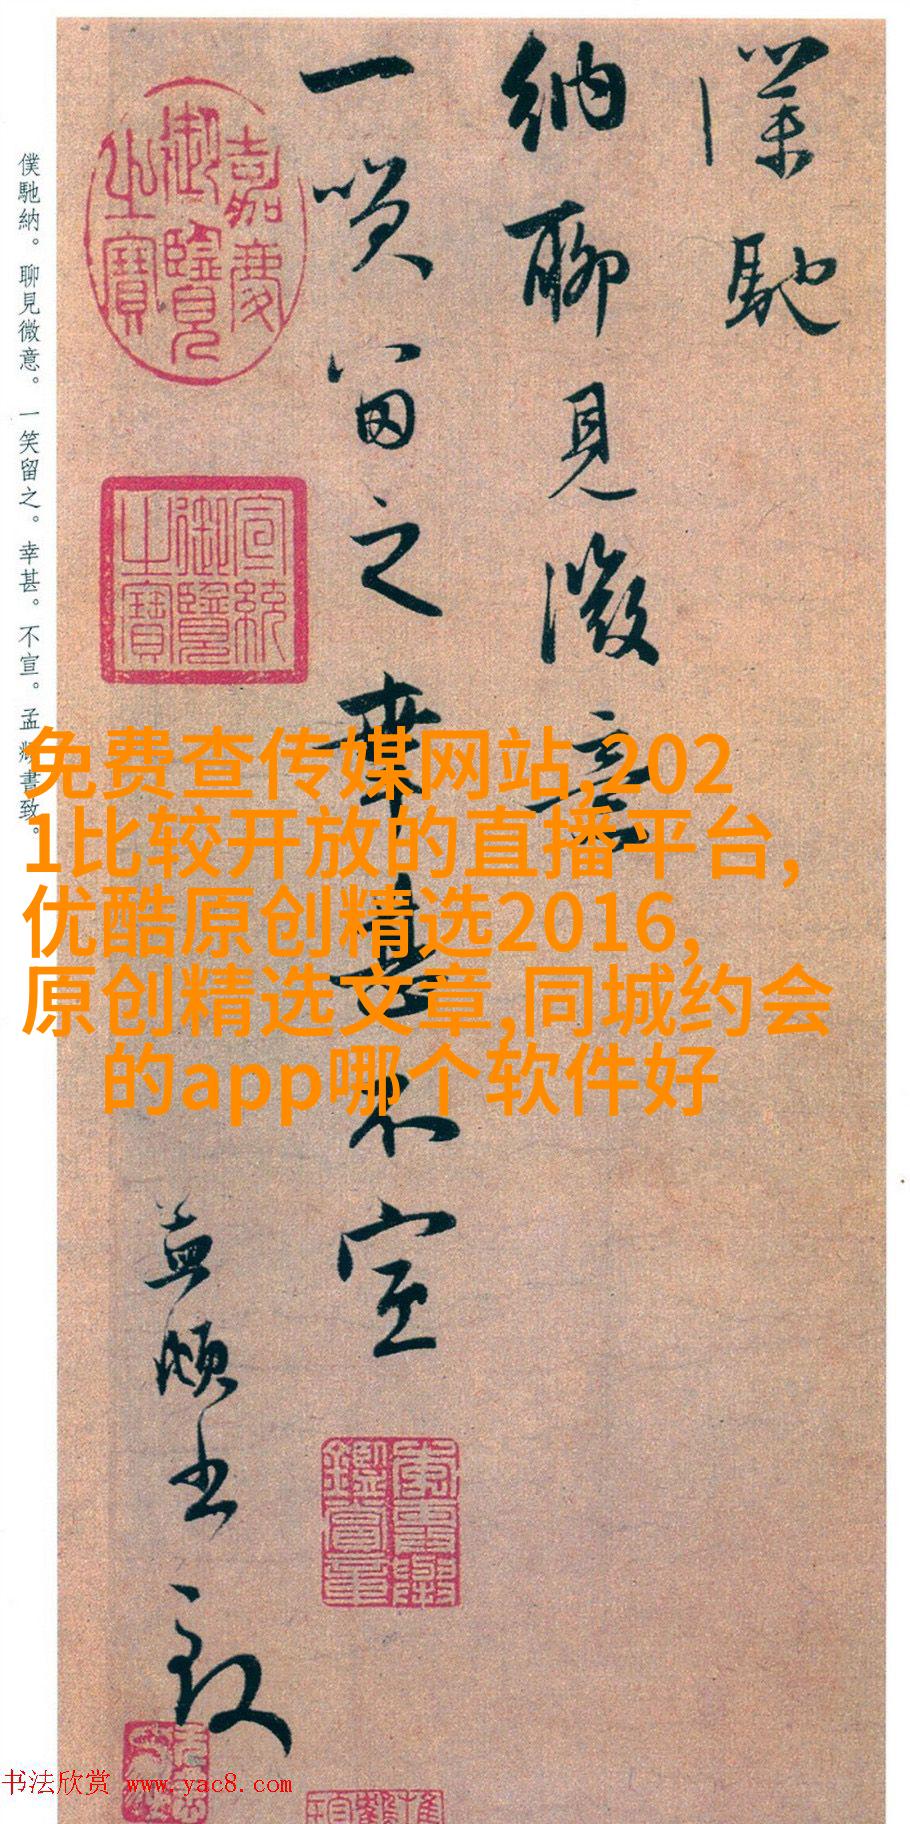 僕馳
納聊見微意
一笑留之幸甚不宣
孟頫書致
嘉慶御覽之寶
宣統御覽之寶
僕馳納。聊見微意。一笑留之。幸甚。不宣。孟頫書致。
免费查传媒网站,202
1比较开放的直播平台,
优酷原创精选2016,
原创精选文章,同城约会
的app哪个软件好
书法欣赏 www.yac8.com